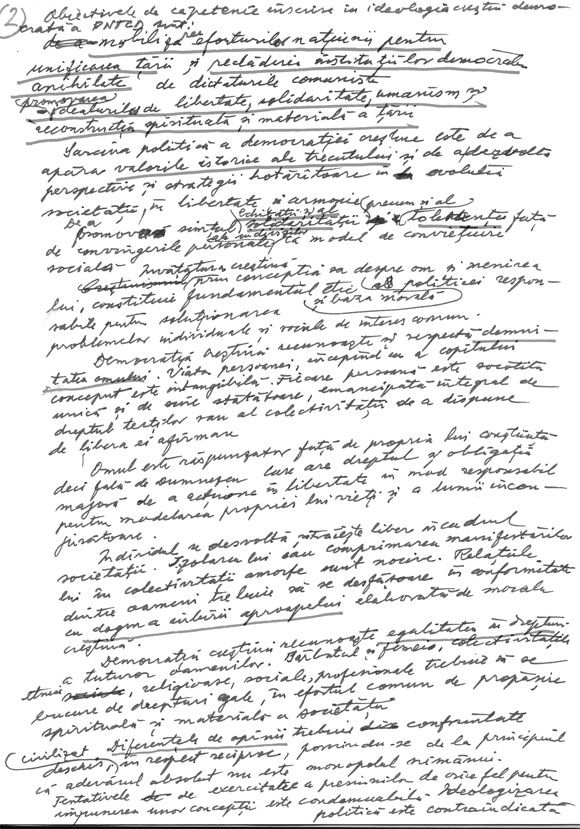 (2) Obiectivele de căpetenie înscrise în ideologia creștin demo-
crată a PNȚCD sunt:
mobilizarea eforturilor națiunii pentru
unificarea țării și reclădirea instituțiilor democrate
anihilate de dictaturile comuniste
promovarea
idealurilor de libertate, solidaritate, umanism și
reconstrucția spirituală și materială a țării
Sarcina politică a democrației creștine este de a
apăra valorile istorice ale trecutului și de a dezvolta
perspective și strategii hotărîtoare în evoluția
societății, în libertate și armonie precum și al
De a promova simțul solidarității toleranței față
de convingerile personale ca model de conviețuire
socială. Învățătura creștină
prin concepția sa despre om și menirea
lui, constituie fundamentul etic al politicei respon-
și baza morală
sabile pentru soluționarea
problemelor individuale și sociale de interes comun.
Democrația creștină recunoaște și respectă demni-
tatea omului. Viața persoanei, începînd cu a copilului
conceput este intangibilă. Fiecare persoană este socotită
unică și de sine stătătoare, emancipată integral de
dreptul terților sau al colectivității de a dispune
de libera ei afirmare
Omul este răspunzător față de propria lui conștiință
deci față de Dumnezeu care are dreptul și obligația
majoră de a acționa în libertate în mod responsabil
pentru modelarea propriei lui vieți și a lumii încon-
jurătoare.
Individul se desvoltă, trăiește liber în cadrul
societății. Izolarea lui sau comprimarea manifestărilor
lui în colectivități amorfe sunt nocive. Relațiile
dintre oameni trebuie să se desfășoare în conformitate
cu dogma iubirii aproapelui elaborată de morala
creștină.
Democrația creștină recunoaște egalitatea în drepturi
a tuturor oamenilor. Bărbatul și femeia, colectivitățile
etnice, religioase, sociale, profesionale trebuie să se
bucure de drepturi egale, în efortul comun de propășire
spirituală și materială a societății
Diferențele de opinii trebuie confruntate
civilizat
deschis, în respect reciproc, pornindu-se de la principiul
că adevărul absolut nu este monopolul nimănui.
Tentativele de exercitare a presiunilor de orice fel pentru
impunerea unor concepții este condamnabilă. Ideologizarea
politică este contraindicată